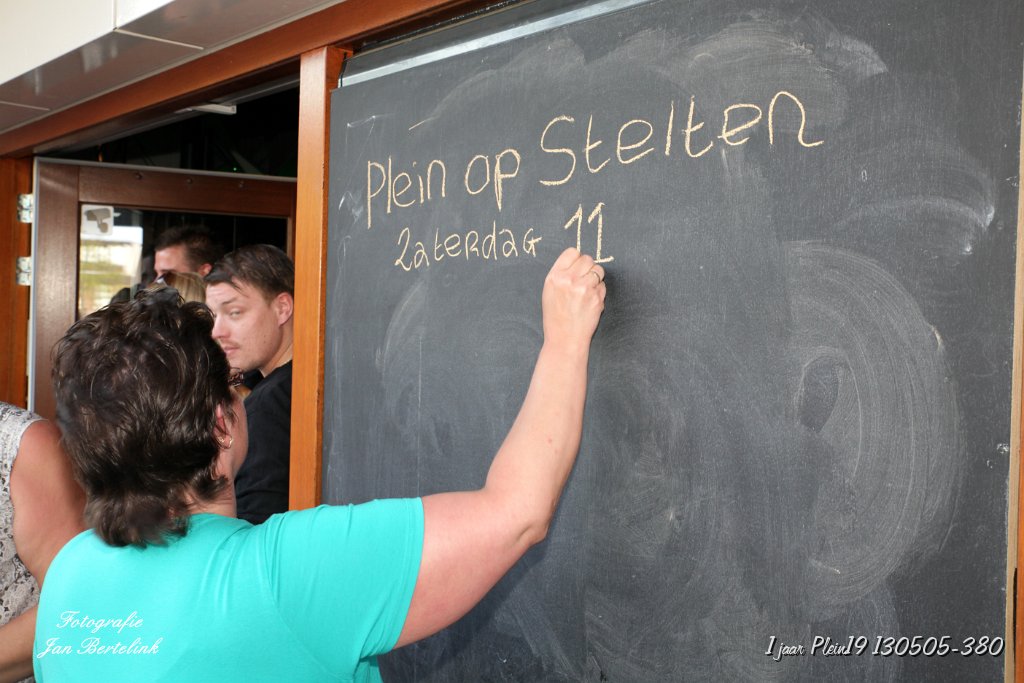 Plein op Stelten
Zaterdag 11
Fotografie
Jan Bertelink
1 jaar Plein19 130505-380